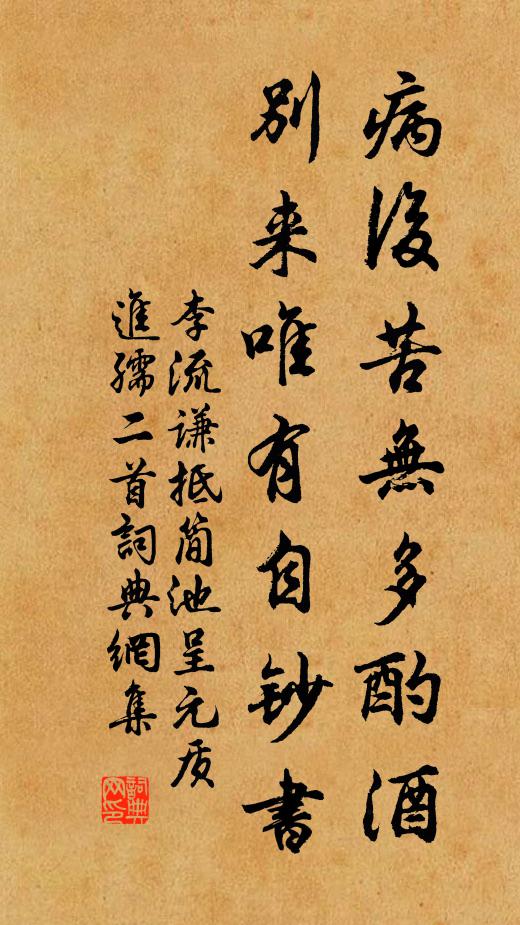 病後苦無多酌酒
別来唯有自鈔書
李流謙抵简池呈元质
進孺二首詞典網集
詞典網印